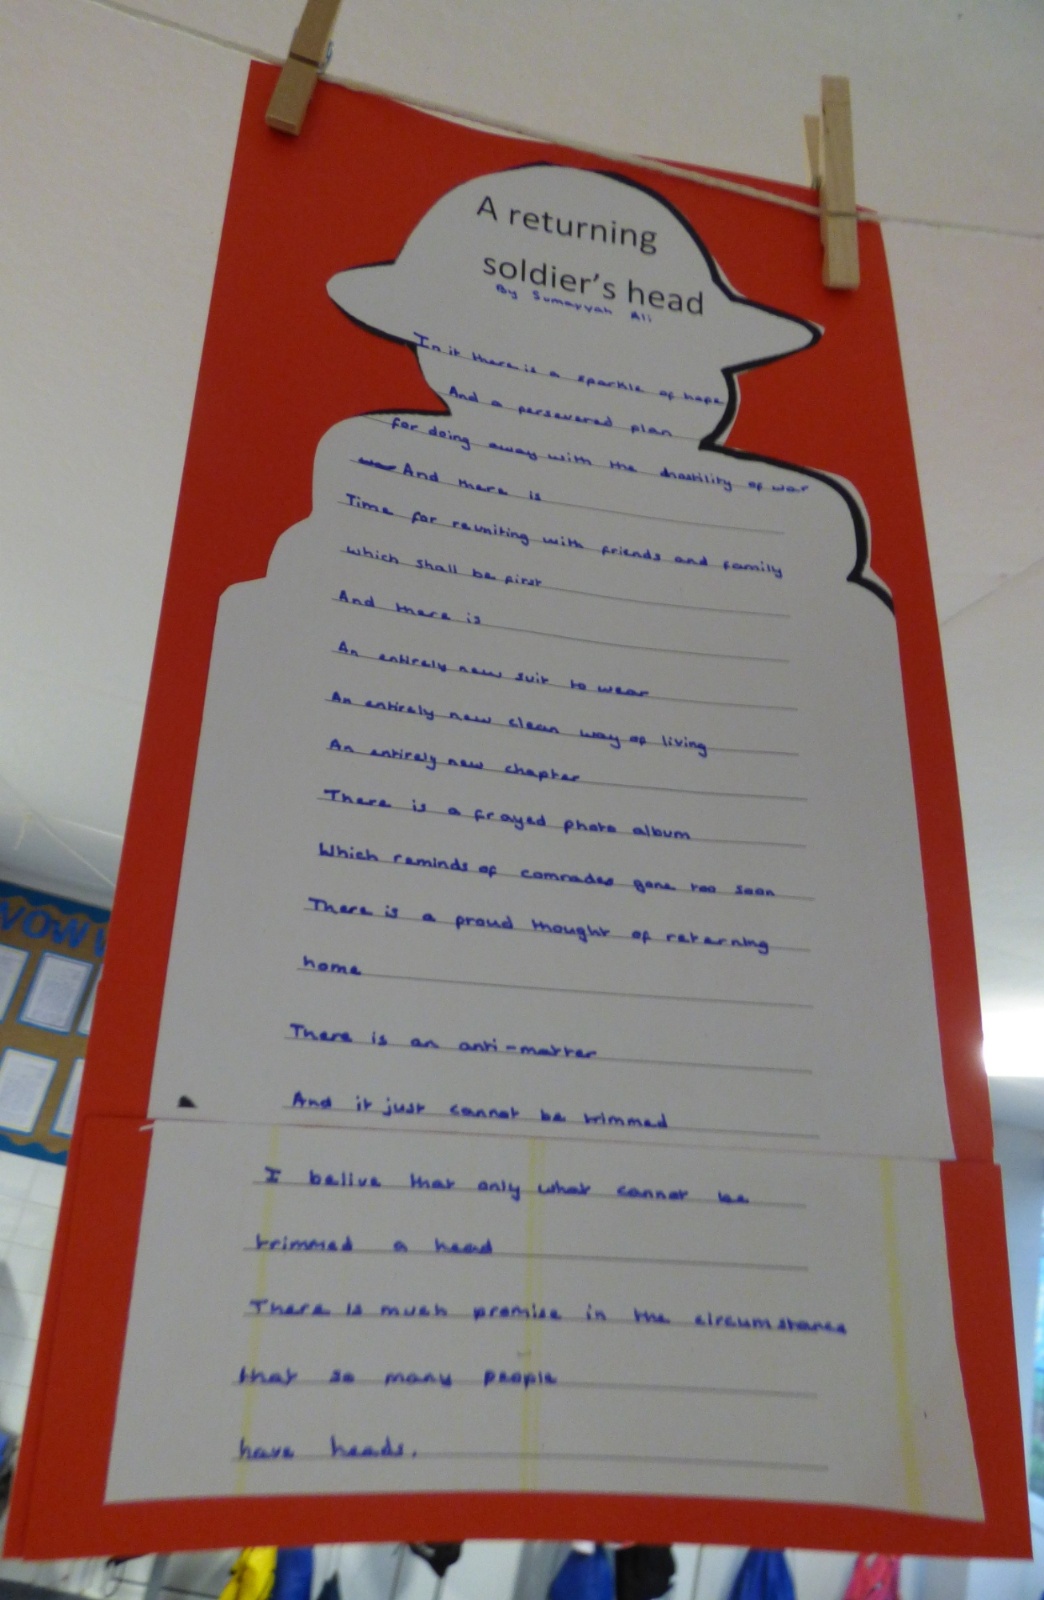 A returning
soldier's head
By Sumayyah Ali
In it there is a sparkle of hope
And a persevered plan
for doing away with the hostility of war
And there is
Time for reuniting with friends and family
which shall be first
And there is
An entirely new suit to wear
An entirely new clean way of living
An entirely new chapter
There is a frayed photo album
Which reminds of comrades gone too soon
There is a proud thought of returning
home
There is an anti-matter
And it just cannot be trimmed
I belive that only what cannot be
trimmed a head
There is much promise in the circumstance
that so many people
have heads.
WOW